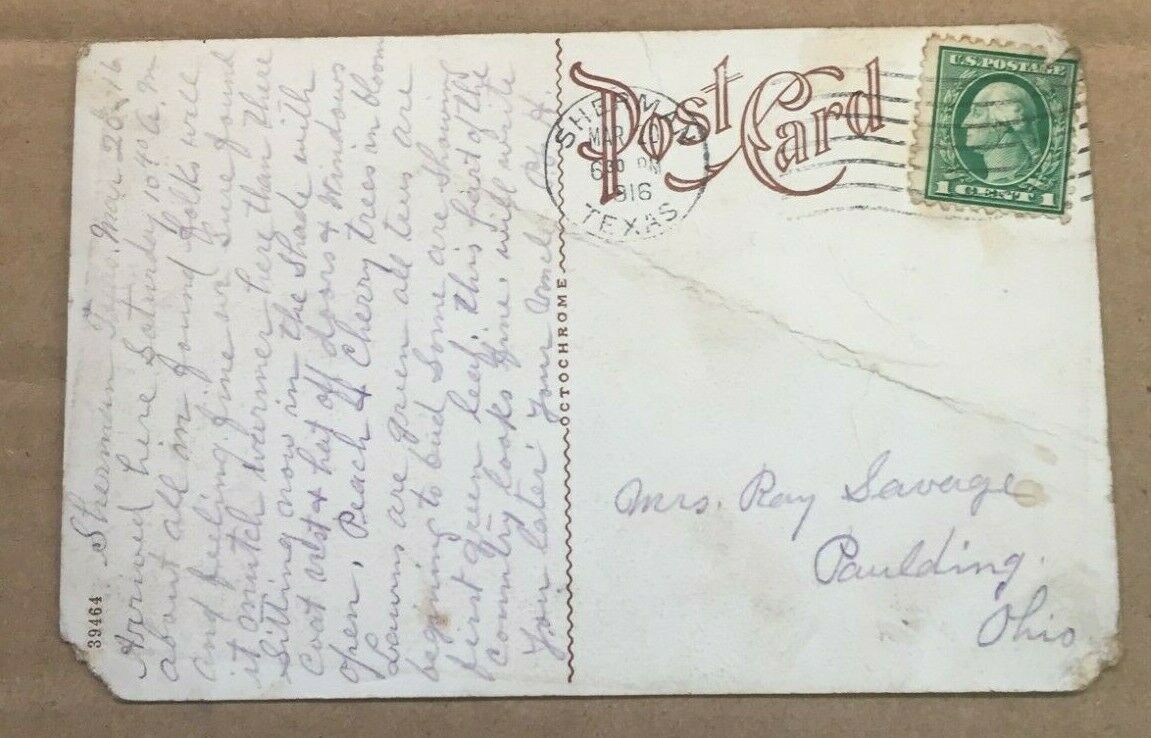 Sherman Texas. Mar 26-16
Arrived here Saturday 10 40 a. m
about all in found folks well
and feeling fine or Sure found
it much warmer here than there
Sitting now in the Shade with
Coat vest & hat off doors & Windows
open. Peach & Cherry trees in bloom
Lawns are green all trees are
begining to bud Some are Showing
first green leaf, this part of the
Country looks fine. will write
You later. Your Uncle
39464
OCTOCHROME
Post Card
SHERMAN
MAR
6 30 PM
1916
TEXAS
U.S. POSTAGE
1 CENT 1
Mrs. Ray Savage
Paulding.
Ohio